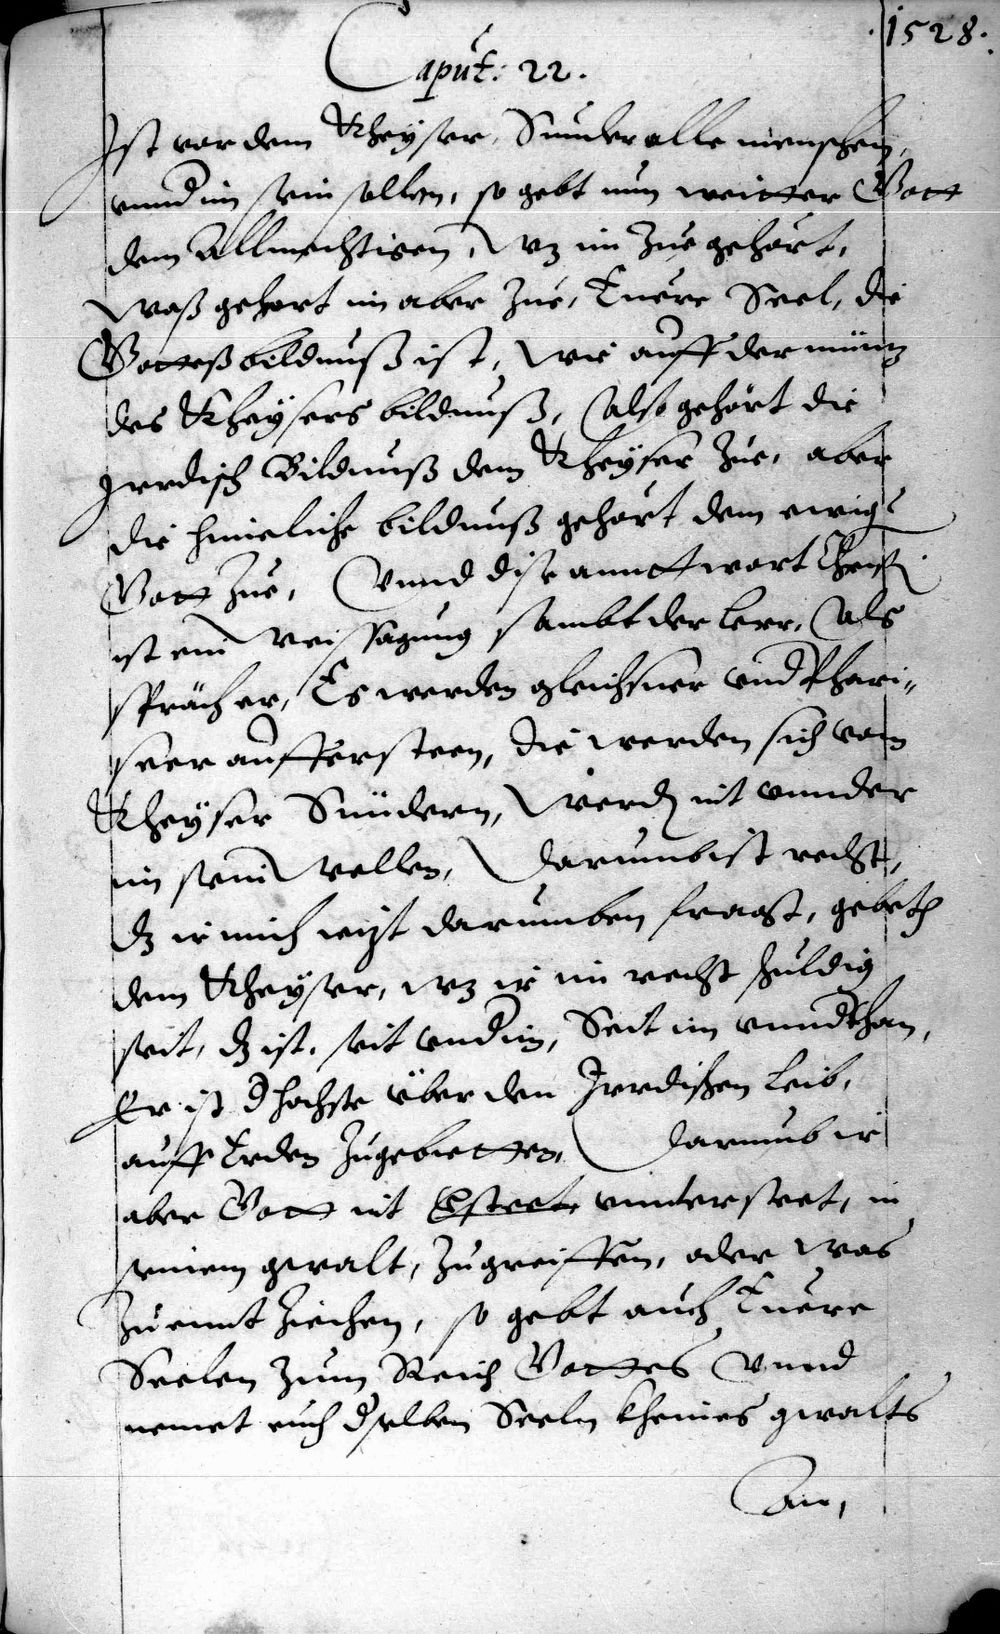 1528.
Caput: 22.
Ist vor dem Kheyser, Sunder alle menschen,
vnnd im sein sollen, so gebt nun weitter Gott
dem Allmechtigen, wz im zue gehört,
waß gehort im aber zue, Euere Seel, die
Gotteß bildnuß ist, wie auff der müntz
des Kheysers bildnuß, also gehört die
Irrdisch Bildnuß dem Kheyser zue, aber
die himliche bildnuß gehört dem ewigen
Gott zue, Vnnd dise anntwort Christi
ist ein weissagung sambt der lerr, als
spräch er, Es werden gleichsner vnd Phari-
seer auffersteen, die werden sich vom
Kheyser Sündern, werden nit vnnder
im sein wellen, Darumb ist recht,
dz ir mich ietzt darumben fragt, gebet
dem Kheyser, wz ir im recht schuldig
seit, dz ist, seit vnd im, Seit im vnndthan,
Er ist d hochste über den Irrdischen leib,
auff Erden zugebietten, Darumb ir
aber Gott nit vnntersteet, in
seinem gwalt, zugreiffen, oder was
zu ennt ziechen, so gebt auch Euere
Seelen zum Reich Gottes Vnnd
nemet euch dselben Seeln kheines gwalts
an,